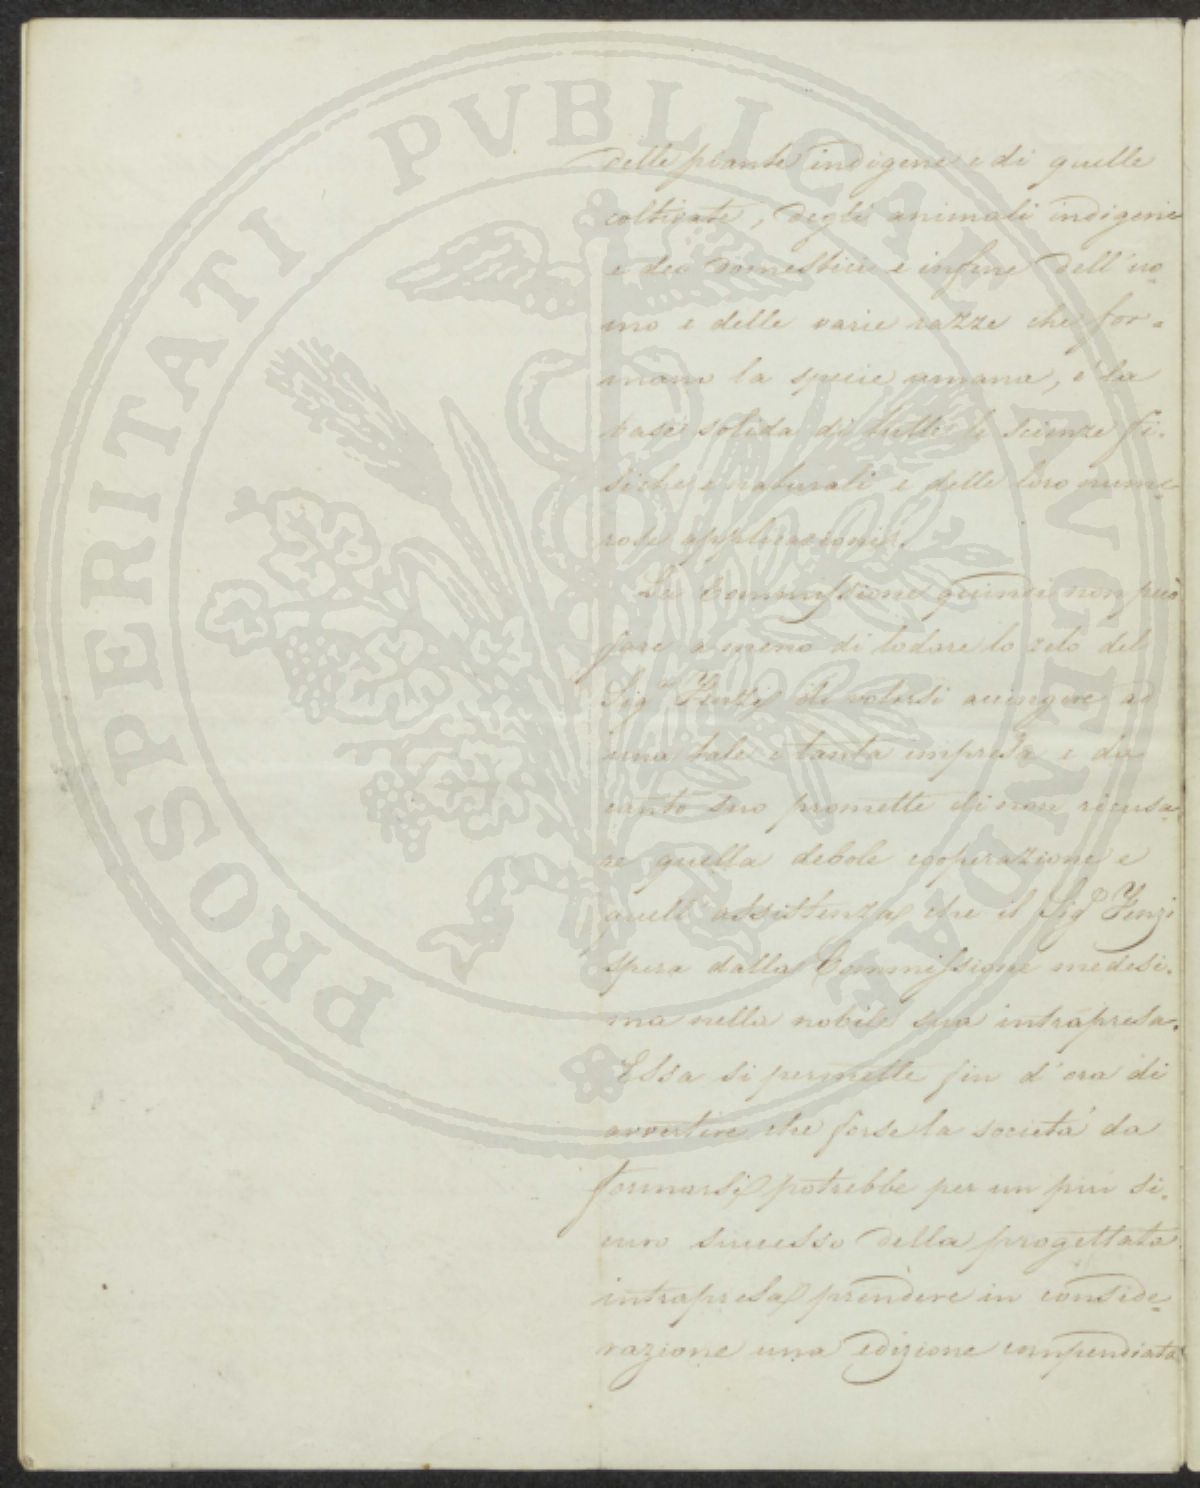 PROSPERITATI PVBLICAE AVGENDAE
delle piante indigene e di quelle
coltivate, degli animali indigeni
e dei domestici e infine dell'uo-
mo e delle varie razze che for-
mano la specie umana, è la
base solida di tutte le scienze fi-
siche e naturali e delle loro nume-
rose applicazioni.
La Commissione quindi non può
fare a meno di lodare lo zelo del
Sig.r Fenzi di volersi accingere ad
una tale e tanta impresa e da
canto suo promette di non ricusa-
re quella debole cooperazione e
quell'assistenza, che il Sig.r Fenzi
spera dalla Commissione medesi-
ma nella nobile sua intrapresa.
Essa si permette fin d'ora di
avvertire che forse la società da
formarsi, potrebbe per un più si-
curo successo della progettata
intrapresa, prendere in conside-
razione una edizione compendiata